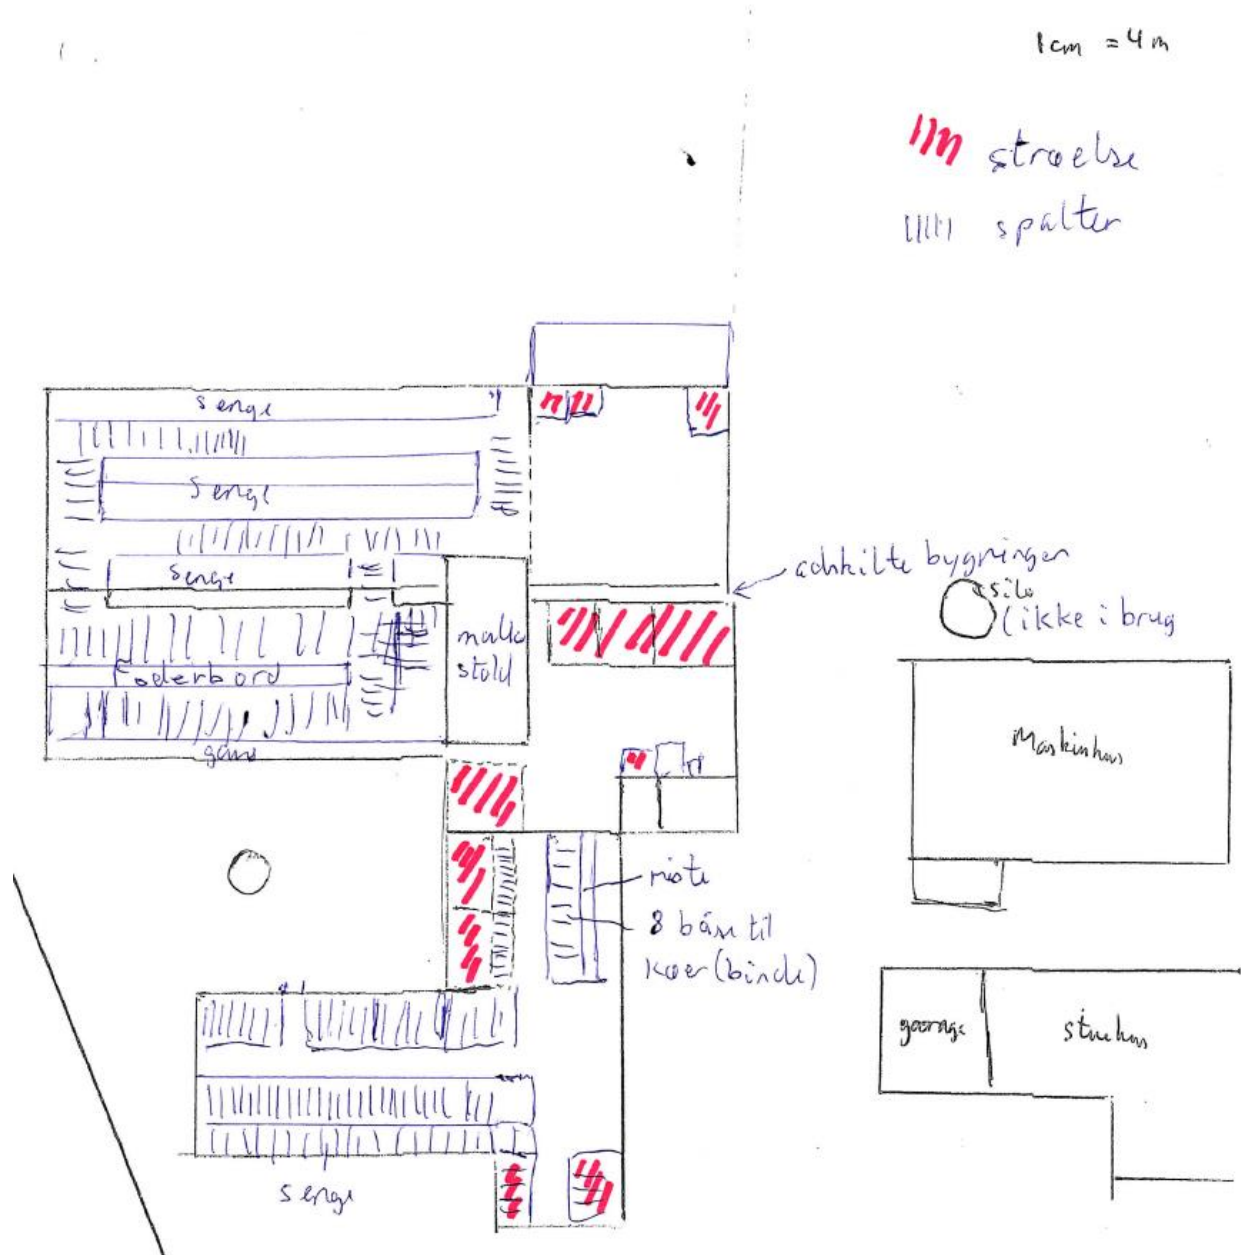 1cm = 4m
strøelse
spalter
senge
senge
senge
malke
stald
Foderbord
gang
adskilte bygninger
silo
(ikke i brug
Maskinhus
riste
8 båse til
køer (binde)
garage
stuehus
senge